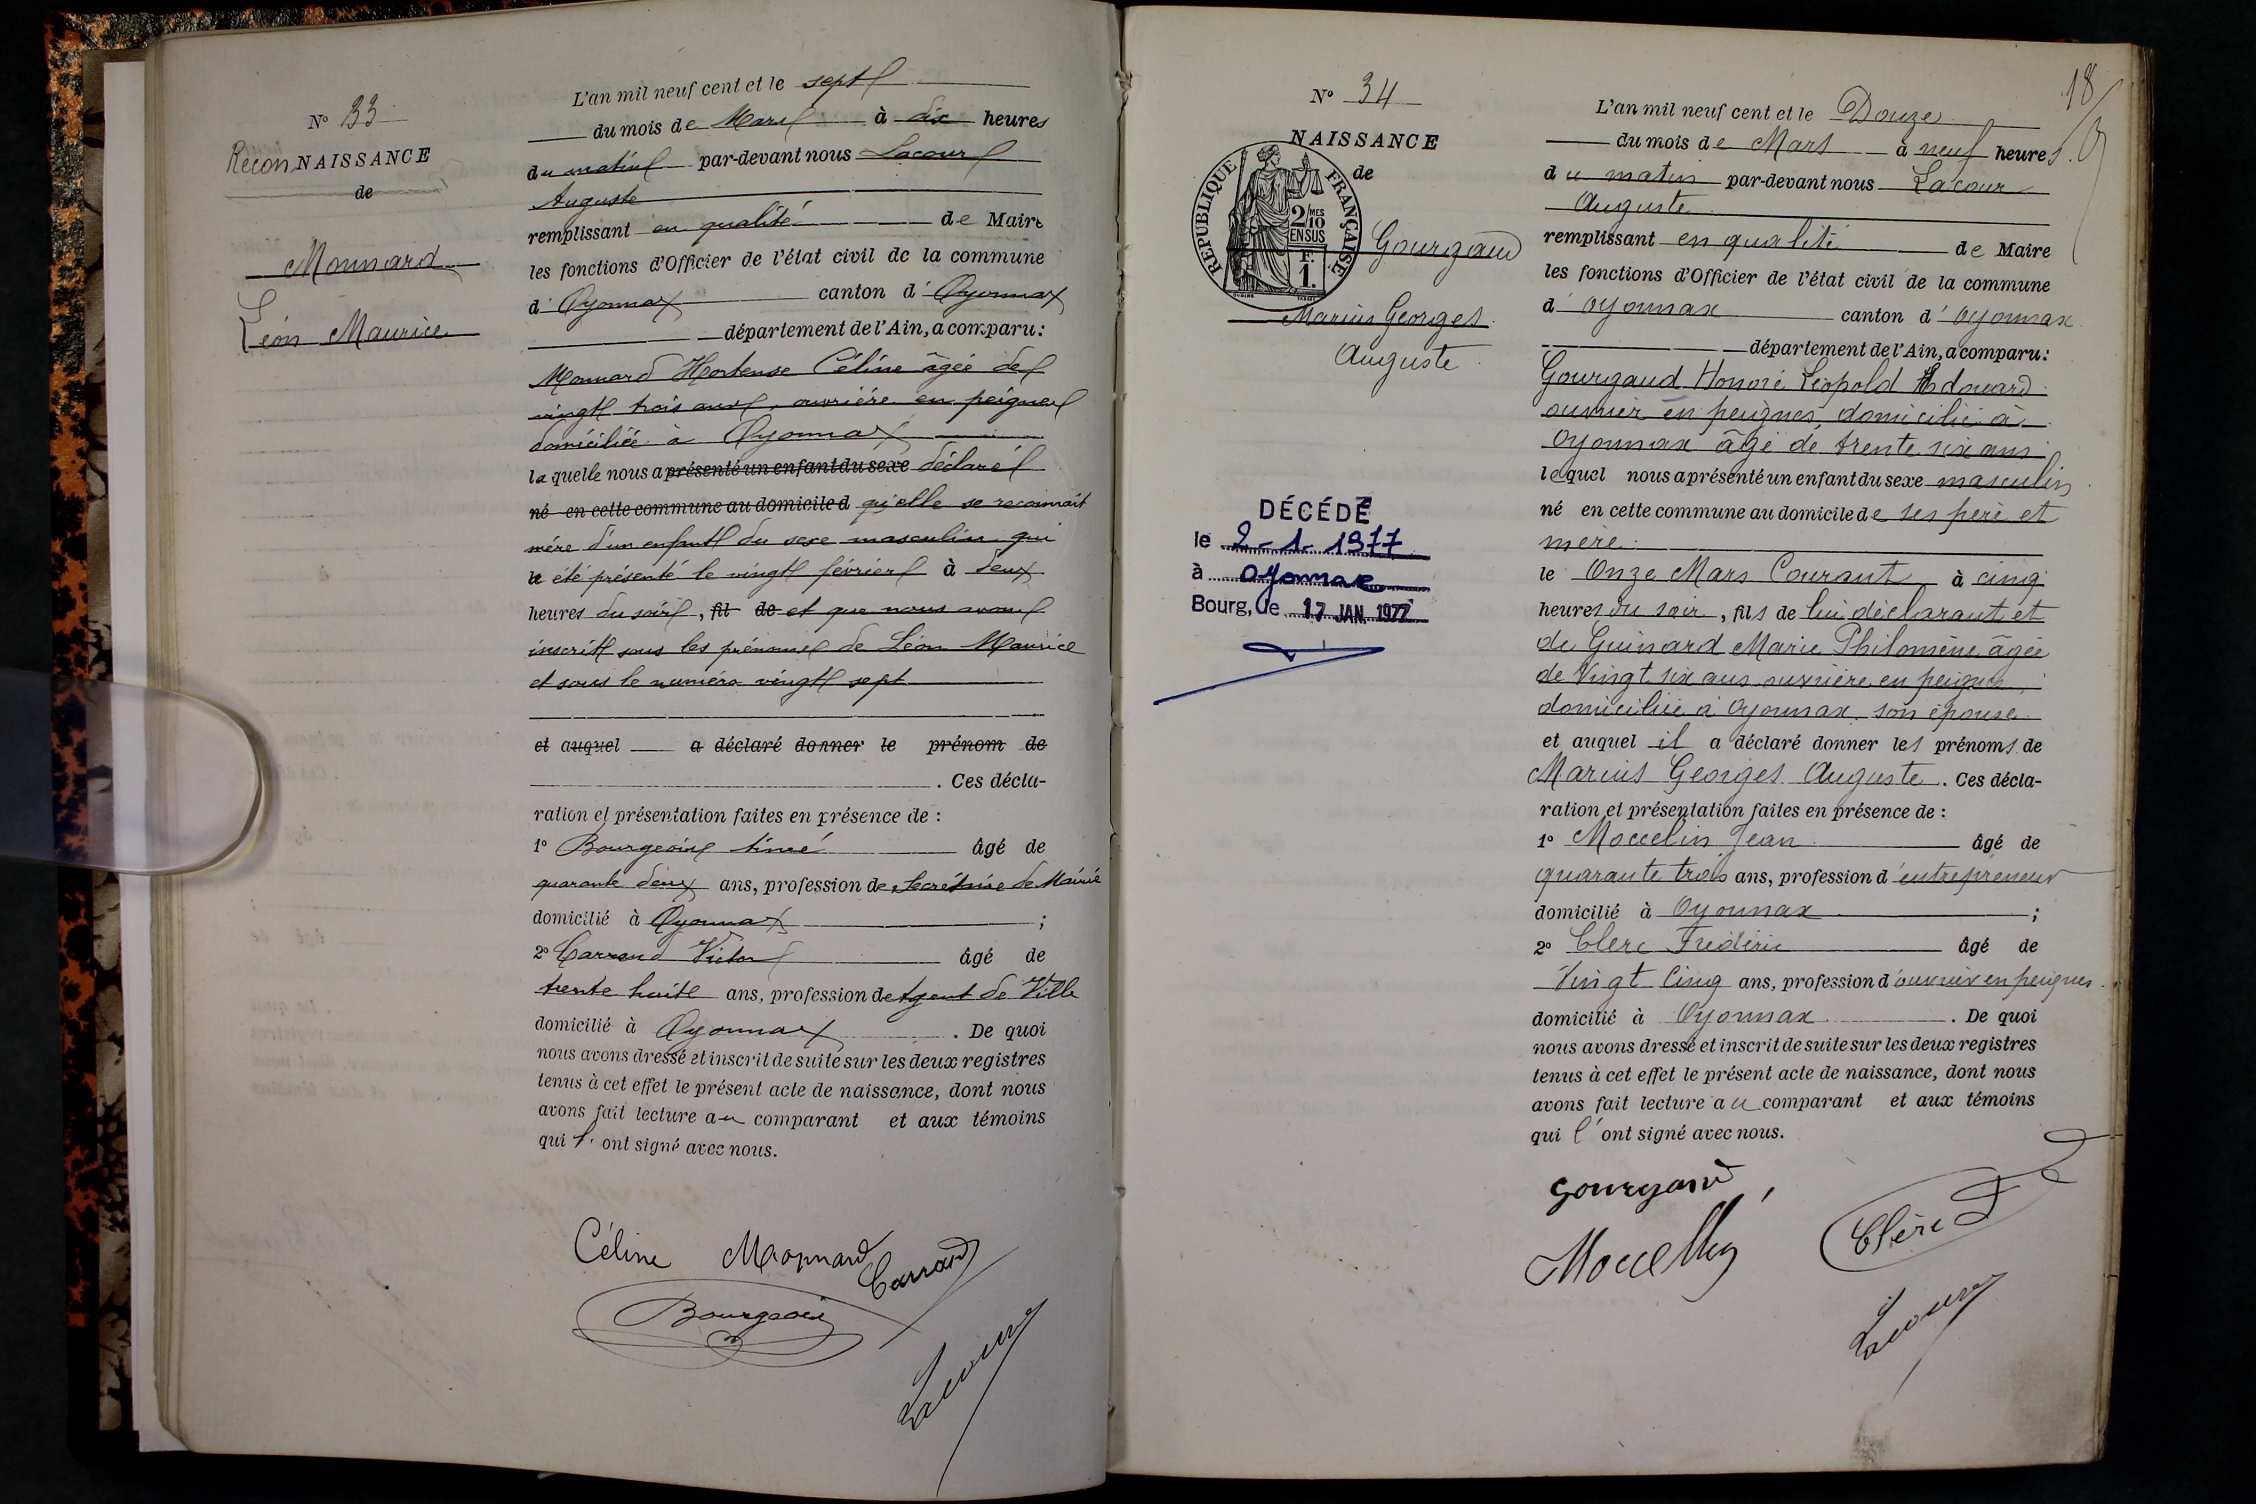 N° 33
ReconNAISSANCE
de
Monnard
Léon Maurice
L'an mil neuf cent et le sept
du mois de Mars à dix heures
du matin par-devant nous Lacour
Auguste
remplissant en qualité de Maire
les fonctions d'Officier de l'état civil de la commune
d'Oyonnax canton d'Oyonnax
département de l'Ain, a comparu:
Monnard Hortense Céline âgée de
vingt trois ans, ouvrière en peignes
domiciliée à Oyonnax
laquelle nous a présenté un enfant du sexe déclaré
né en cette commune au domicile d qu'elle se reconnait
mère d'un enfant du sexe masculin qui
le été présenté le vingt février à deux
heures du soir, fil de et que nous avons
inscrit sous les prénoms de Léon Maurice
et sous le numéro vingt sept
et auquel a déclaré donner le prénom de
. Ces décla-
ration et présentation faites en présence de :
1° Bourgeois Aimé âgé de
quarante deux ans, profession de Secrétaire de Mairie
domicilié à Oyonnax ;
2° Carrand Victor âgé de
trente huit ans, profession de Agent de Ville
domicilié à Oyonnax . De quoi
nous avons dressé et inscrit de suite sur les deux registres
tenus à cet effet le présent acte de naissance, dont nous
avons fait lecture au comparant et aux témoins
qui l'ont signé avec nous.
Céline Monnard
Carrand
Bourgeois
Lacour
18
N° 34
NAISSANCE
de
RÉPUBLIQUE FRANÇAISE
2/10MES
EN SUS
F.
1.
Gourgaud
Marius Georges
Auguste
DÉCÉDÉ
le 2-1-1977
à Oyonnax
Bourg, le 17 JAN. 1977
L'an mil neuf cent et le Douze
du mois de Mars à neuf heures
du matin par-devant nous Lacour
Auguste
remplissant en qualité de Maire
les fonctions d'Officier de l'état civil de la commune
d'Oyonnax canton d'Oyonnax
département de l'Ain, a comparu:
Gourgaud Honoré Léopold Edouard
ouvrier en peignes, domicilié à
Oyonnax âgé de trente six ans
lequel nous a présenté un enfant du sexe masculin
né en cette commune au domicile de ses père et
mère
le Onze Mars Courant à cinq
heures du soir, fils de lui déclarant et
de Guinard Marie Philomène âgée
de Vingt six ans ouvrière en peignes
domiciliée à Oyonnax, son épouse
et auquel il a déclaré donner les prénoms de
Marius Georges Auguste. Ces décla-
ration et présentation faites en présence de :
1° Moccelin Jean âgé de
quarante trois ans, profession d'entrepreneur
domicilié à Oyonnax ;
2° Clerc Frédéric âgé de
Vingt Cinq ans, profession d'ouvrier en peignes
domicilié à Oyonnax . De quoi
nous avons dressé et inscrit de suite sur les deux registres
tenus à cet effet le présent acte de naissance, dont nous
avons fait lecture au comparant et aux témoins
qui l'ont signé avec nous.
Gourgaud
Moccellin
Clerc F
Lacour